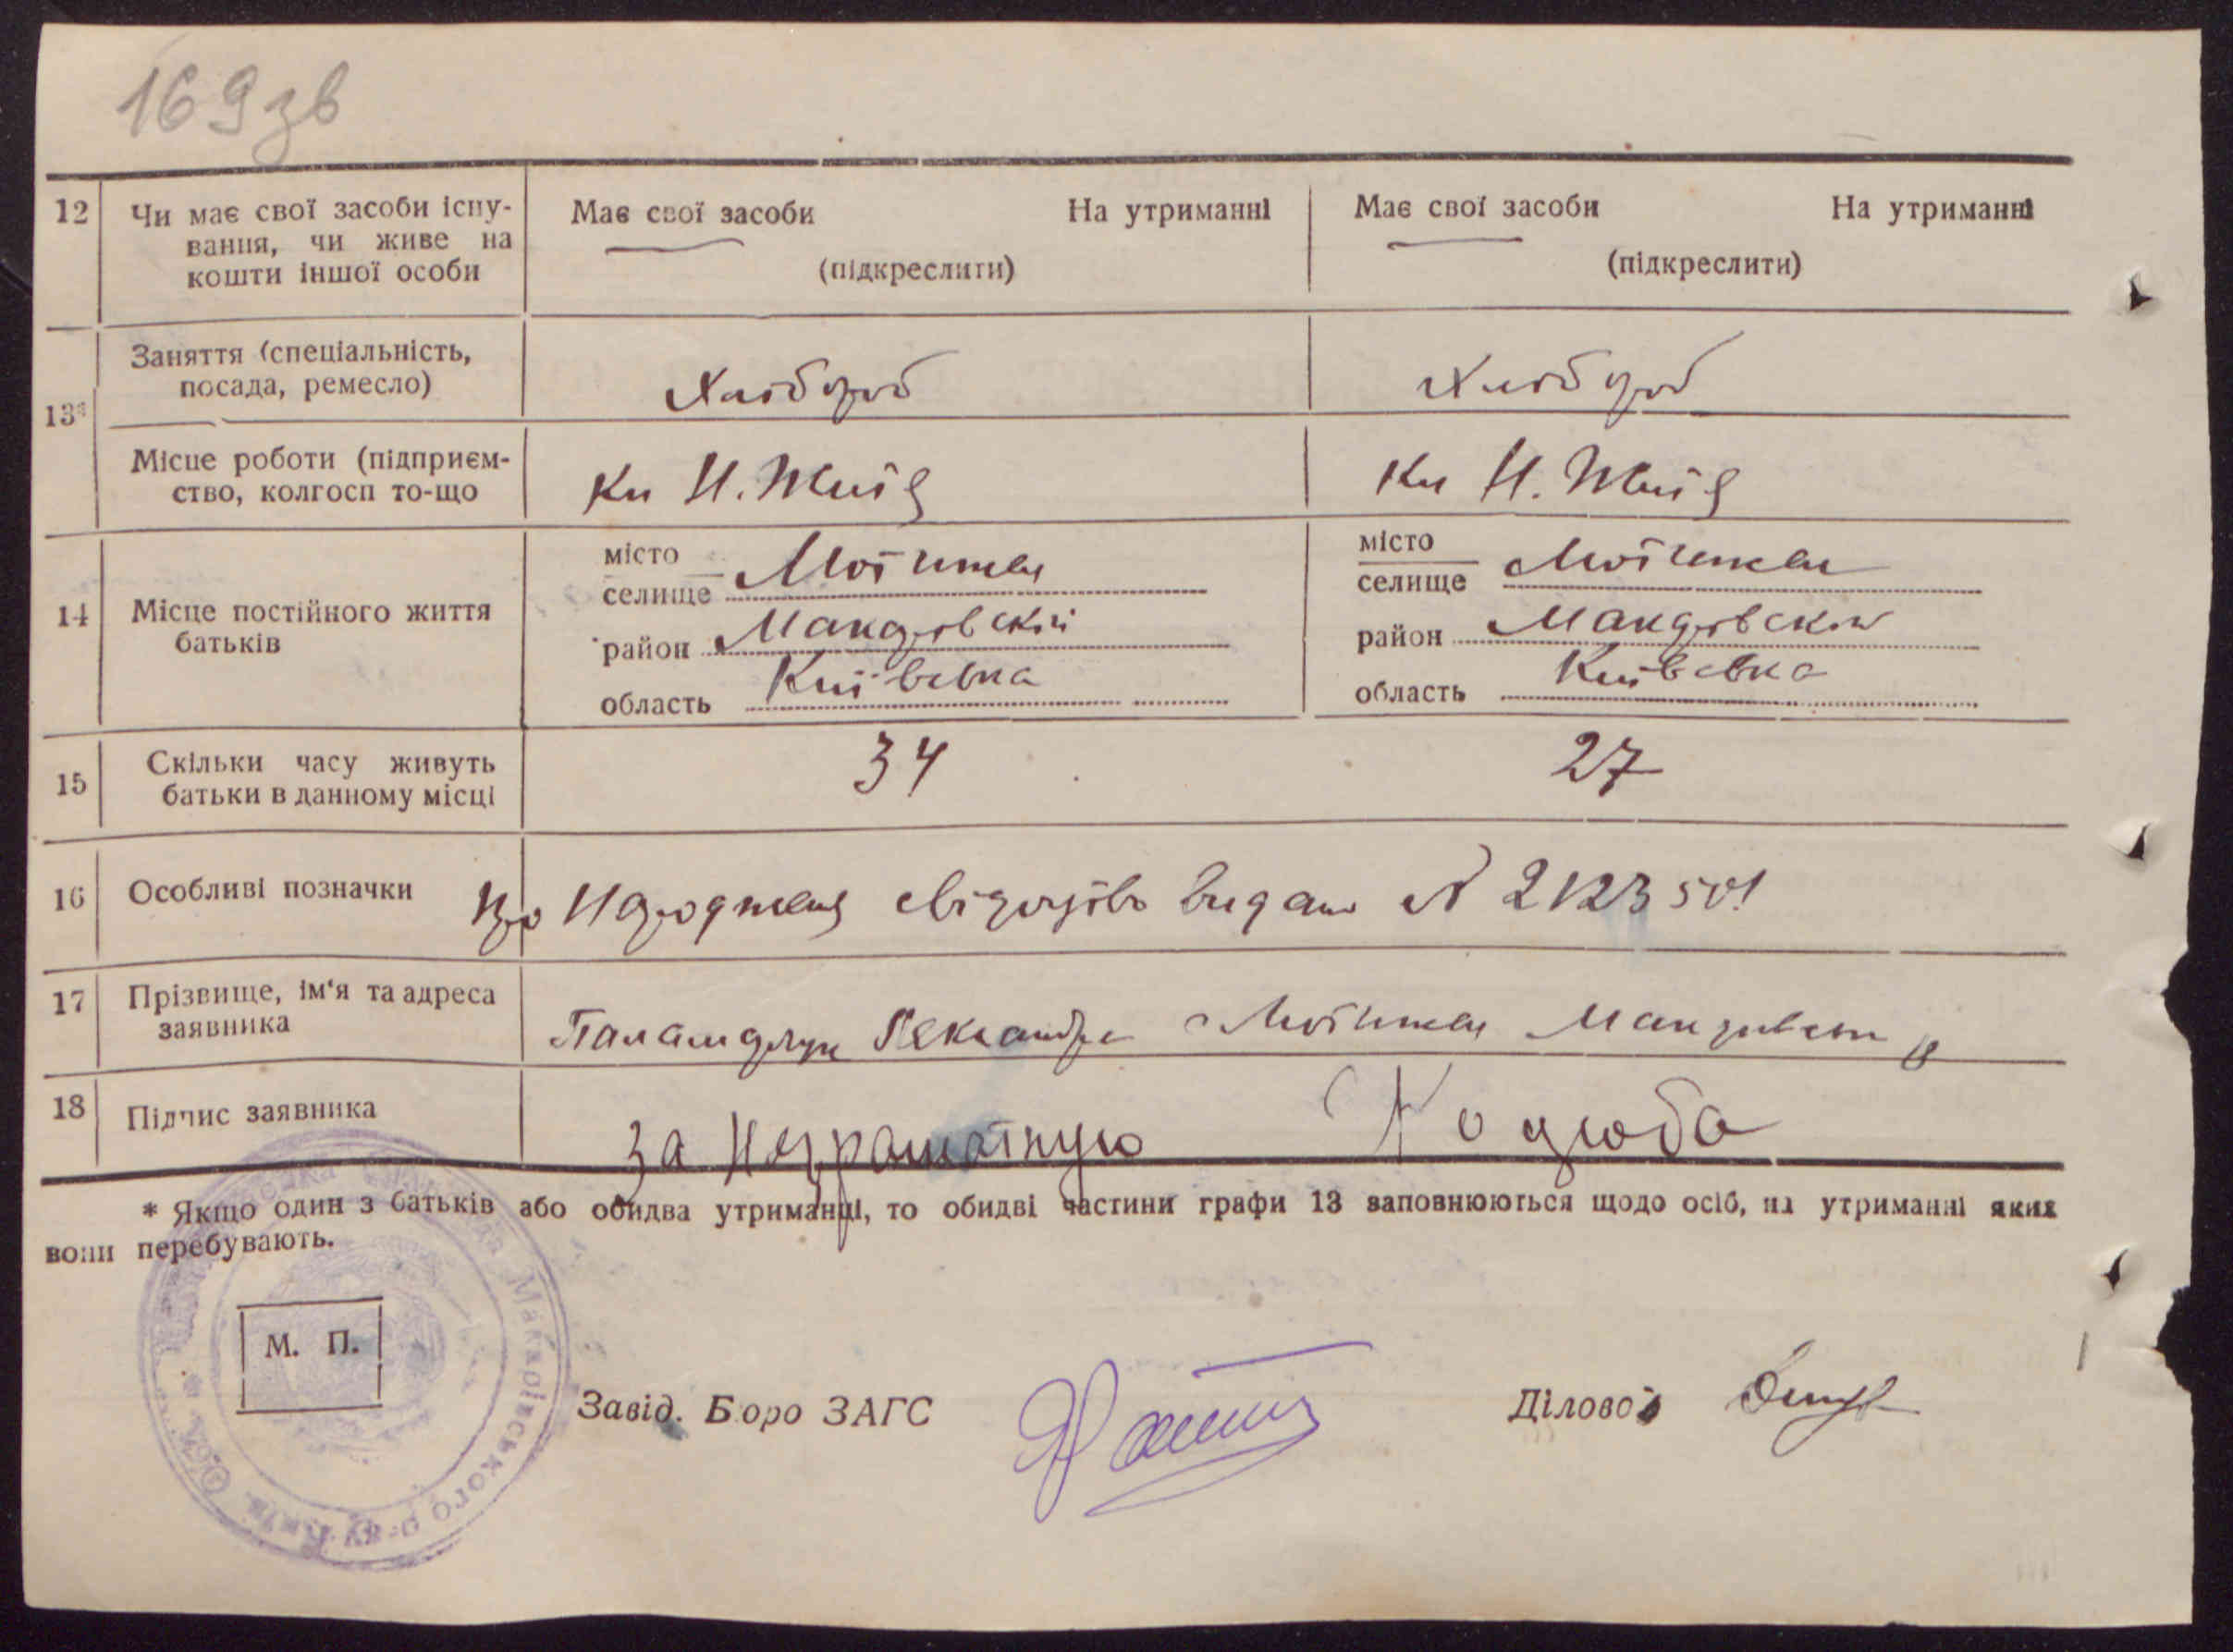 169зв
12 Чи має свої засоби існу-
вання, чи живе на
кошти іншої особи
Має свої засоби На утриманні
(підкреслити)
Має свої засоби На утриманні
(підкреслити)
13*
Заняття (спеціальність,
посада, ремесло)
Хлібороб
Хлібороб
Місце роботи (підприєм-
ство, колгосп то-що
Кп Н. Життя
Кп Н. Життя
14 Місце постійного життя
батьків
місто
селище Мотижен
район Макаровский
область Київська
місто
селище Мотижен
район Макаровский
область Київська
15 Скільки часу живуть
батьки в данному місці
34
27
16 Особливі позначки
Про Народження свідоцтво видано № 2123501
17 Прізвище, ім'я та адреса
заявника
Паламарчук Мотижен
18 Підпис заявника
за неграматную Кодюба
* Якщо один з батьків або обидва утриманці, то обидві частини графи 13 заповнюються щодо осіб, на утриманні яких
вони перебувають.
М. П.
Макарівського р-ну Київ. Обл.
Завід. Бюро ЗАГС
Діловод